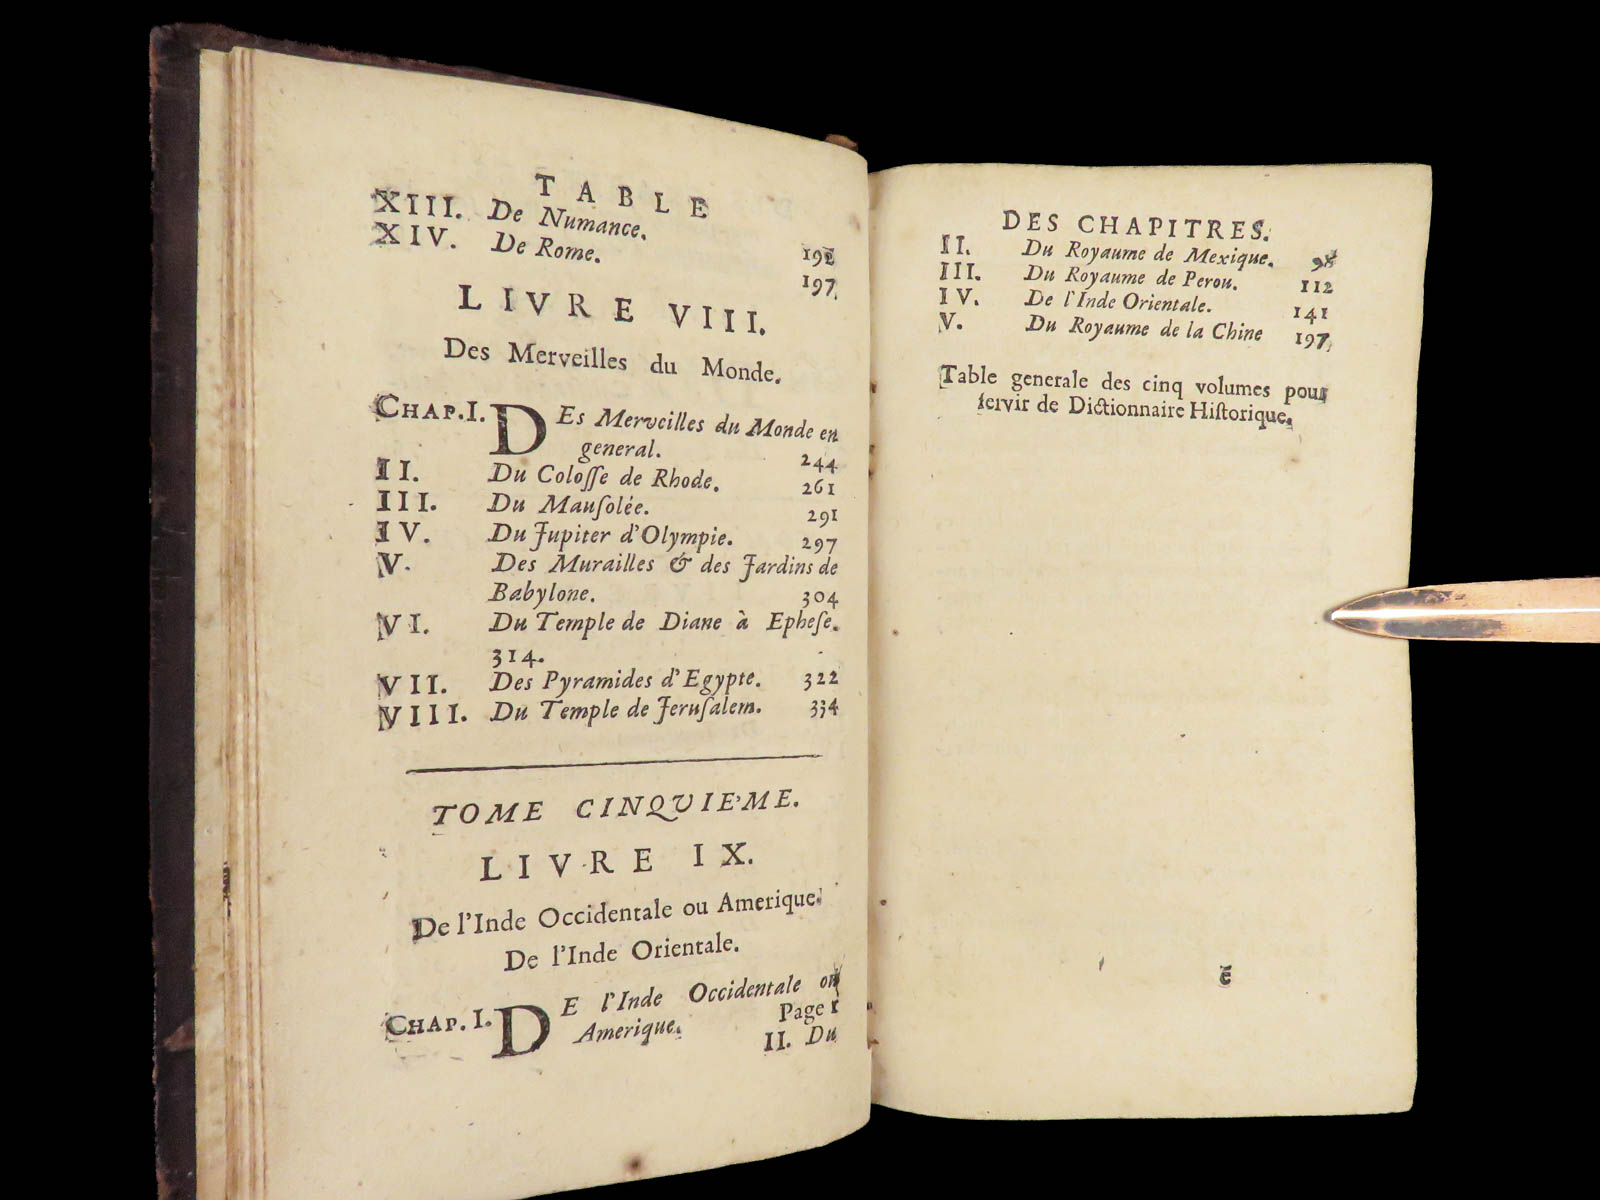 TABLE
XIII. De Numance. 192
XIV. De Rome. 197
LIVRE VIII.
Des Merveilles du Monde.
CHAP. I. DEs Merveilles du Monde en
general. 244
II. Du Colosse de Rhode. 261
III. Du Mauſolée. 291
IV. Du Jupiter d'Olympie. 297
V. Des Murailles & des Jardins de
Babylone. 304
VI. Du Temple de Diane à Epheſe.
314.
VII. Des Pyramides d'Egypte. 322
VIII. Du Temple de Jeruſalem. 334
TOME CINQUIE'ME.
LIVRE IX.
De l'Inde Occidentale ou Amerique.
De l'Inde Orientale.
CHAP. I. DE l'Inde Occidentale ou
Amerique. Page 1
II. Du
DES CHAPITRES.
II. Du Royaume de Mexique. 98
III. Du Royaume de Perou. 112
IV. De l'Inde Orientale. 141
V. Du Royaume de la Chine 197
Table generale des cinq volumes pour
ſervir de Dictionnaire Hiſtorique.
é